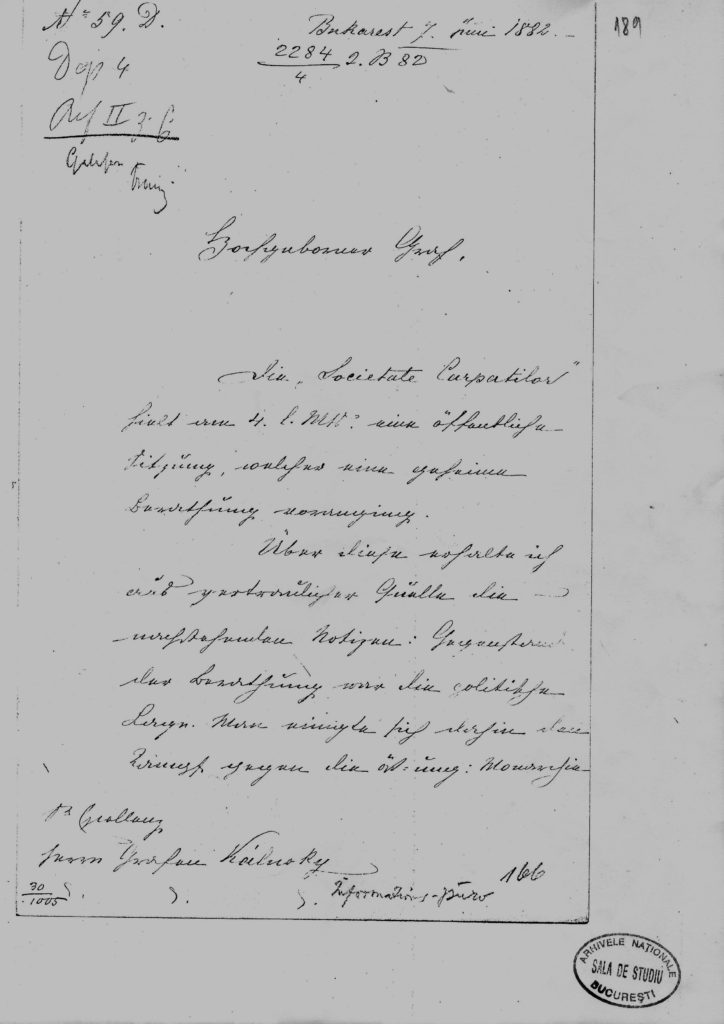 Nº 59. D.
Bukarest 7. Juni 1882.
189
2284
4
2. B 82
Dep 4
Ref II
Hochgeborner Graf,
Die „Societate Carpatilor"
hielt am 4. l. Mts: eine öffentliche
Sitzung, welcher eine geheime
Berathung voranging.
Über diese erhalte ich
aus vertraulicher Quelle die
nachstehenden Notizen: Gegenstand
der Berathung war die politische
Lage. Man einigte sich dahin den
Kampf gegen die öst: ung: Monarchie
Sr Excellenz
Herrn Grafen Kálnoky
30
1005
Informations-Büro
166
ARHIVELE NAȚIONALE
SALA DE STUDIU
BUCUREȘTI